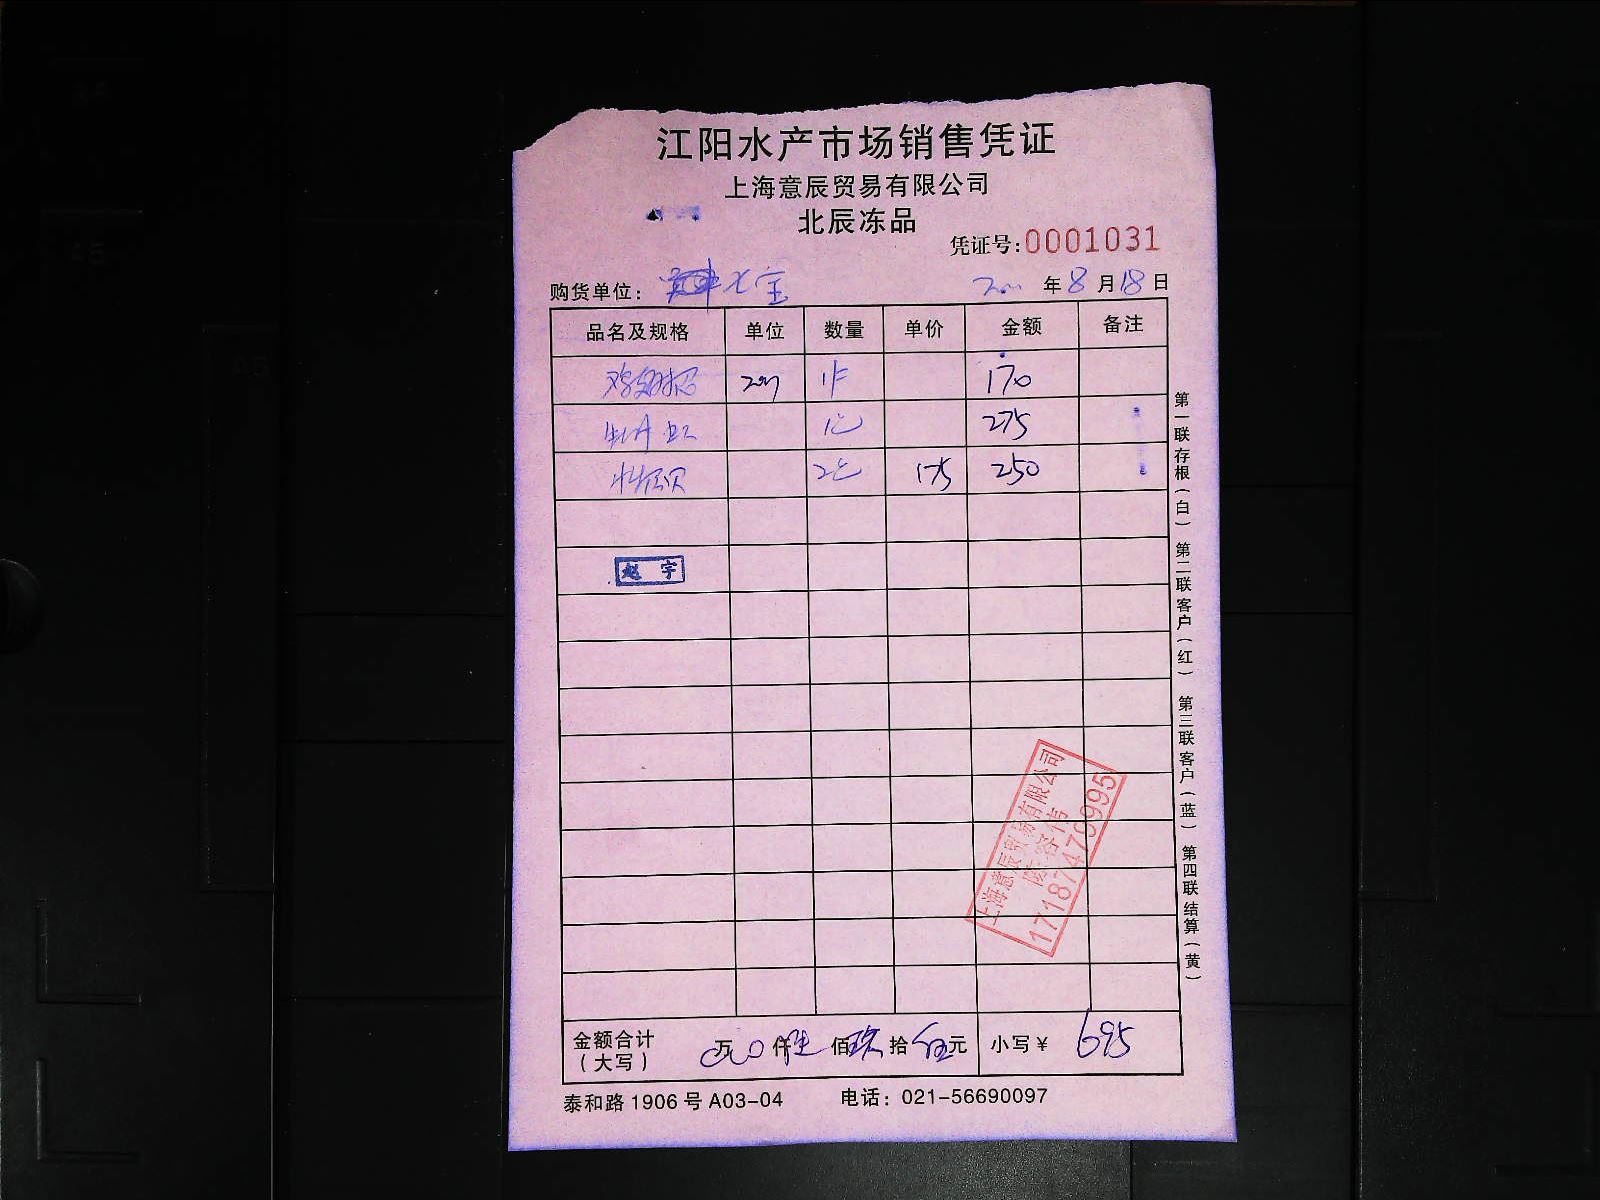 江阳水产市场销售凭证
上海意辰贸易有限公司
北辰冻品
凭证号:0001031
购货单位: 七宝 年8月18日
品名及规格 单位 数量 单价 金额 备注
170
275
175 250
赵宇
上海意辰贸易有限公司
17187476995
金额合计(大写) 万 仟陆佰玖拾伍元 小写¥ 695
泰和路1906号A03-04 电话: 021-56690097
第一联存根(白) 第二联客户(红) 第三联客户(蓝) 第四联结算(黄)